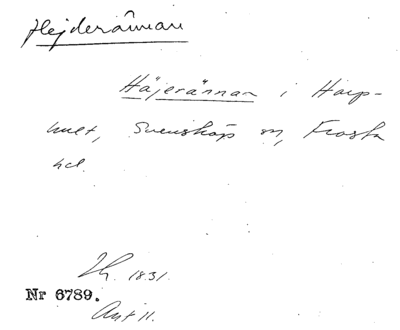 Hejderännan
Häjerännan i Harp-
hult, Svensköp sn, Frosta
hd.
1831.
Nr 6789.
Ant 11.